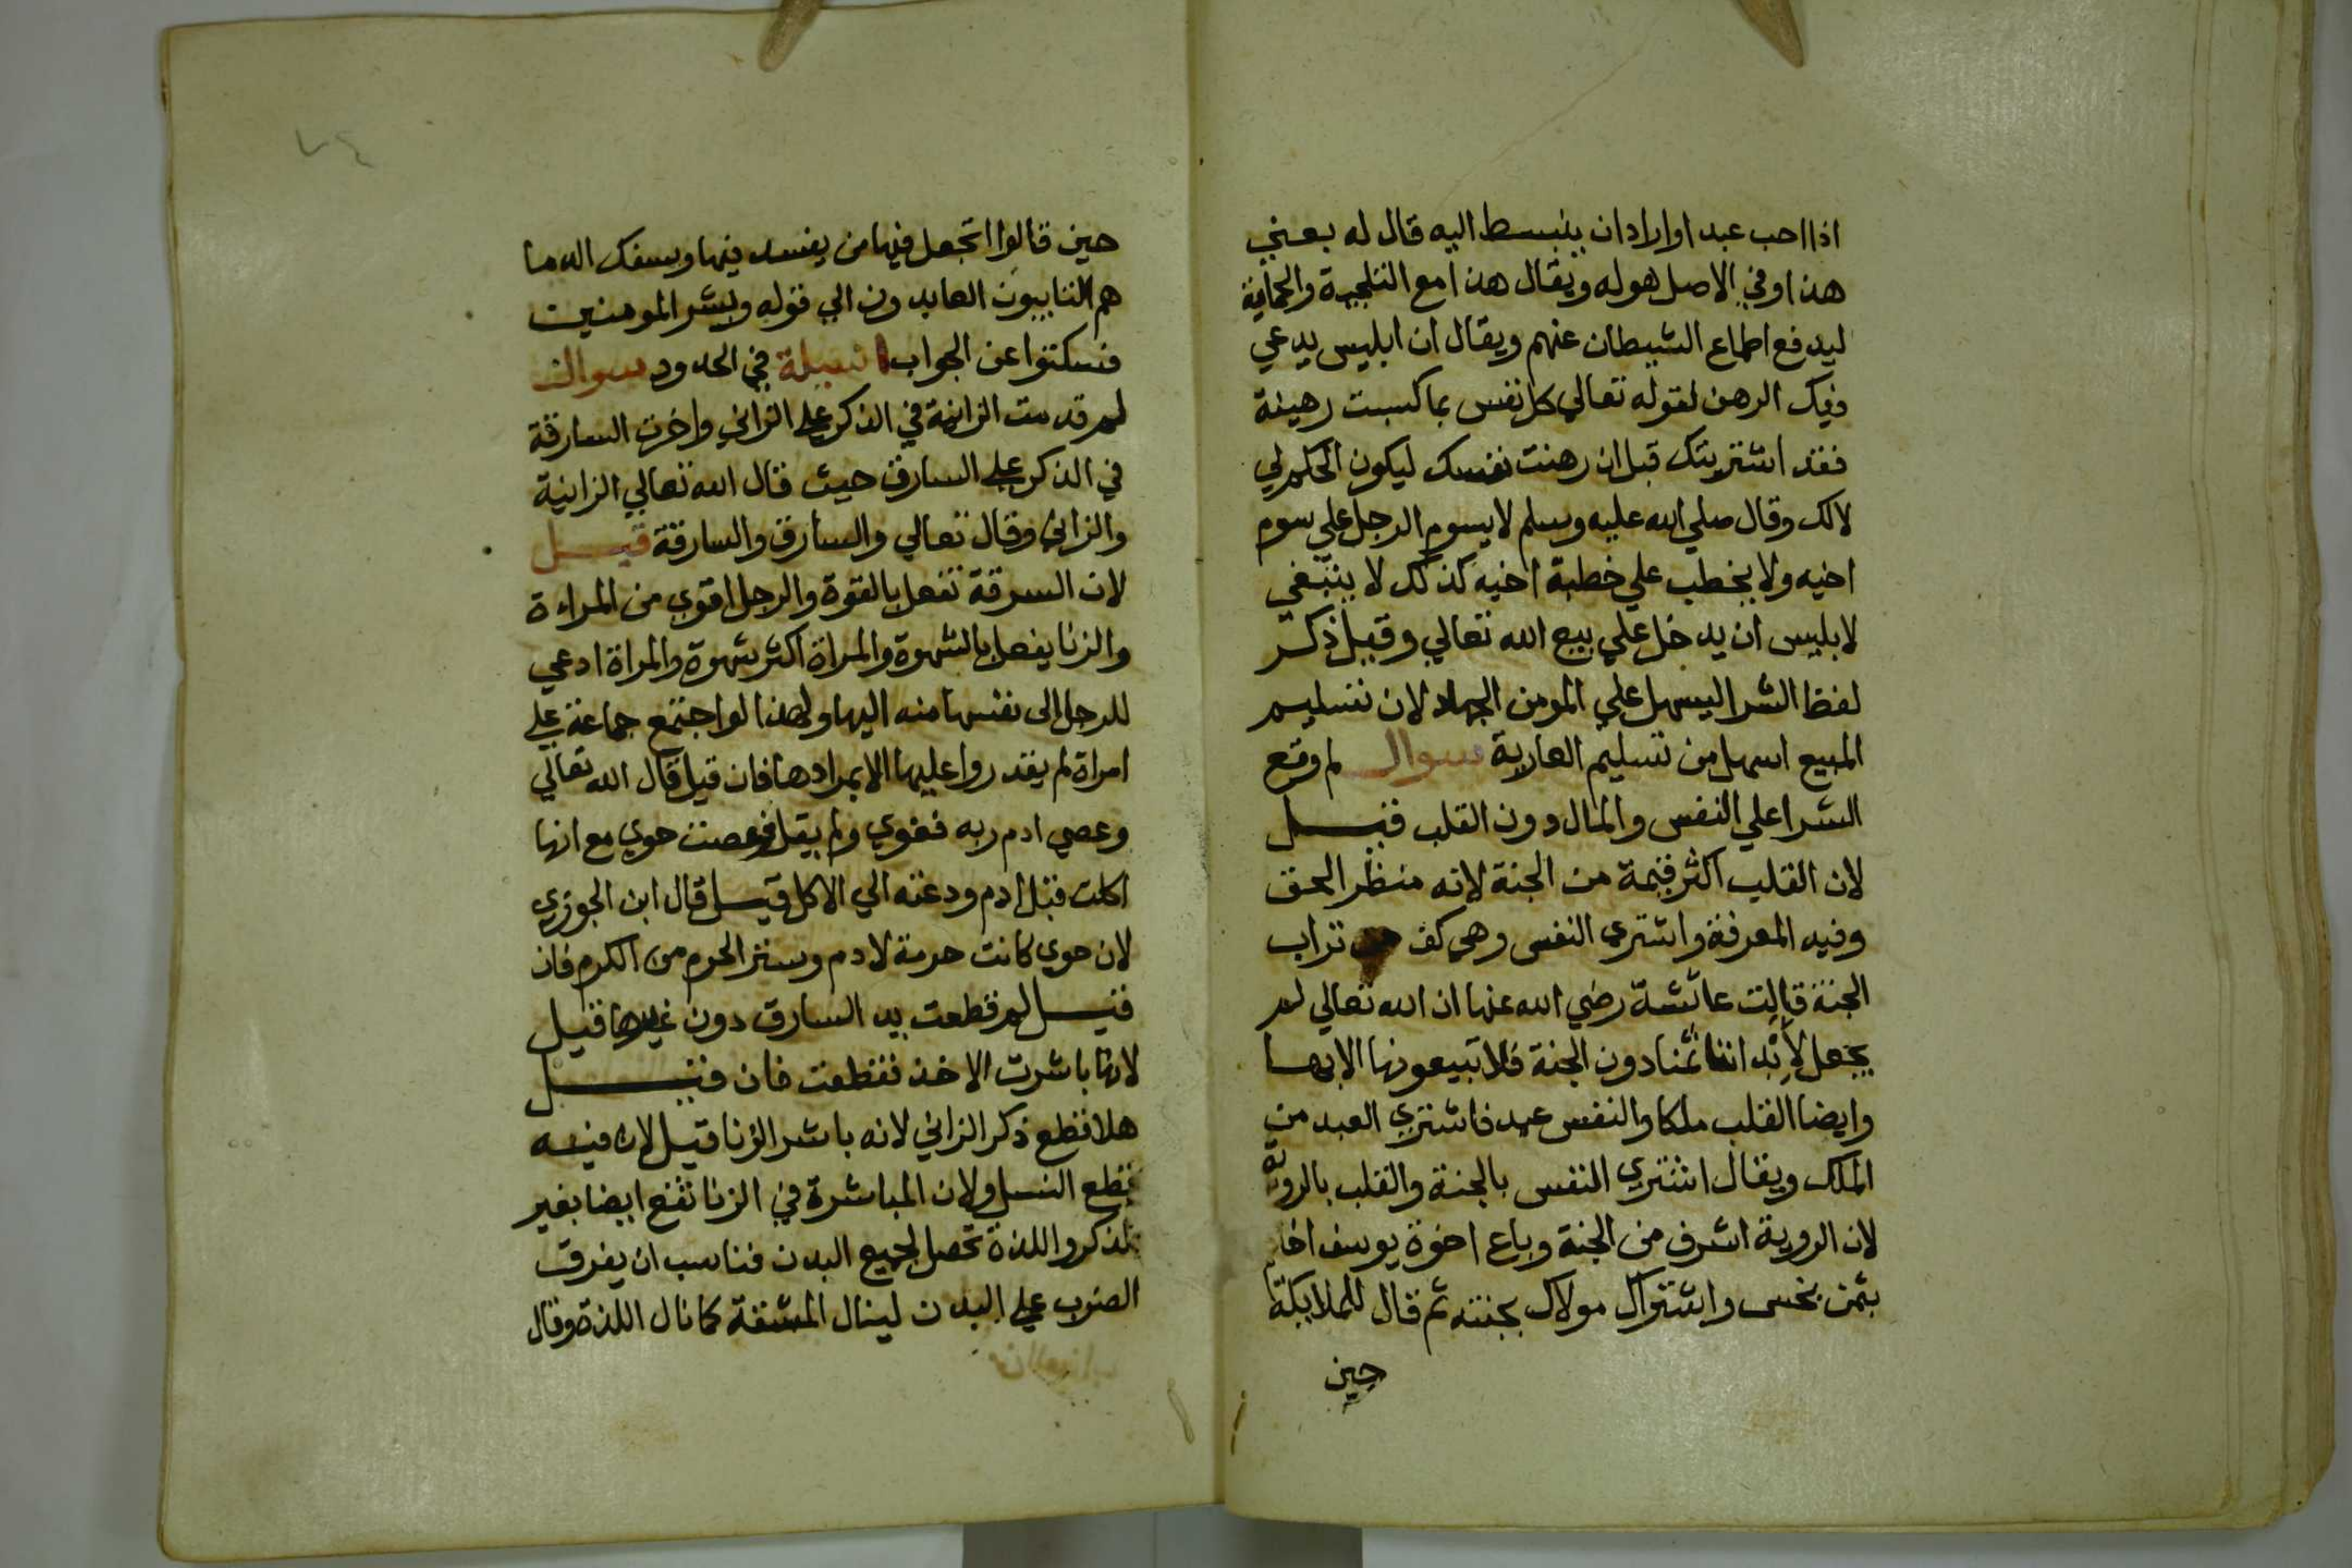 اذا احب عبدا واراد ان ينبسط اليه قال له بعني
هذا وفي الاصل هو له ويقال هذا مع التلجية والحماية
ليدفع اطماع الشيطان عنهم ويقال ان ابليس يدعي
فيك الرهن لقوله تعالي كل نفس بما كسبت رهينة
فقد اشتريتك قبل ان رهنت نفسك ليكون الحكم لي
لا لك وقال صلي الله عليه وسلم لا يسوم الرجل علي سوم
اخيه ولا يخطب علي خطبة اخيه كذلك لا ينبغي
لابليس ان يدخل علي بيع الله تعالي وقيل ذكر
لفظ الشرا ليسهل علي المومن الجهاد لان تسليم
المبيع اسهل من تسليم العارية سوال لم وقع
الشرا علي النفس والمال دون القلب قيل
لان القلب اكثر قيمة من الجنة لانه منظر الحق
وفيه المعرفة واشتري النفس وهي كف من تراب
الجنة قالت عائشة رضي الله عنها ان الله تعالي لم
يجعل لابدانا ثمنا دون الجنة فلا تبيعونها الا بها
وايضا القلب ملكا والنفس عبد فاشتري العبد من
الملك ويقال اشتري النفس بالجنة والقلب بالروية
لان الروية اشرف من الجنة وباع اخوة يوسف اخاهم
بثمن بخس واشتراك مولاك بجنته ثم قال للملايكة
حين
٧٤
حين قالوا اتجعل فيها من يفسد فيها ويسفك الدما
هم التايبون العابدون الي قوله وبشر المومنين
فسكتوا عن الجواب اسيلة في الحدود سوال
لم قدمت الزانية في الذكر علي الزاني واخرت السارقة
في الذكر علي السارق حيث قال الله تعالي الزانية
والزاني وقال تعالي والسارق والسارقة قيل
لان السرقة تفعل بالقوة والرجل اقوي من المراءة
والزنا يفعل بالشهوة والمراة اكثر شهوة والمراة ادعي
للرجل الى نفسها منه اليها ولهذا لو اجتمع جماعة علي
امراة لم يقدروا عليها الا بمرادها فان قيل قال الله تعالي
وعصي ادم ربه فغوي ولم يقل وعصت حوي مع انها
اكلت قبل ادم ودعته الي الاكل قيل قال ابن الجوزي
لان حوي كانت حرمة لادم وستر الحرم من الكرم فان
قيل لم قطعت يد السارق دون غيرها قيل
لانها باشرت الاخذ فقطعت فان قيل
هلا قطع ذكر الزاني لانه باشر الزنا قيل لان فيه
قطع النسل ولان المباشرة في الزنا تقع ايضا بغير
الذكر واللذة تحصل لجميع البدن فناسب ان يفرق
الضرب علي البدن لينال المشقة كما نال اللذة وقال